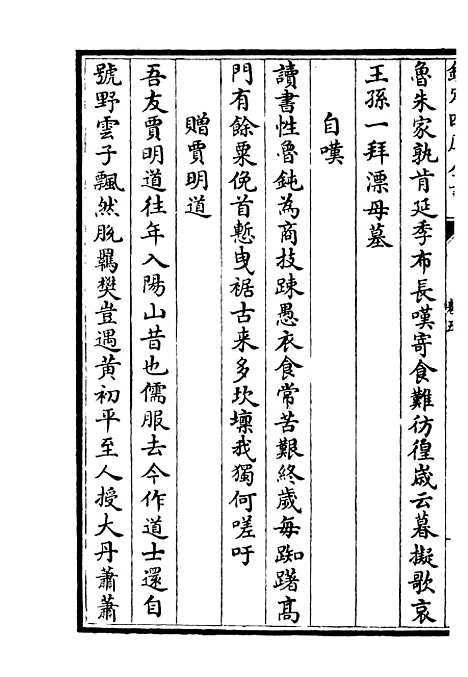 魯朱家孰肯延季布長嘆寄食難彷徨歲云暮擬歌哀
王孫一拜漂母墓
自嘆
讀書性魯鈍為商技踈愚衣食常苦艱終歲每踟躇高
門有餘粟俛首慙曳裾古来多坎壈我獨何嗟吁
贈賈明道
吾友賈明道往年入陽山昔也儒服去今作道士還自
號野雲子飄然脱羈樊豈遇黄初平至人授大丹蕭蕭